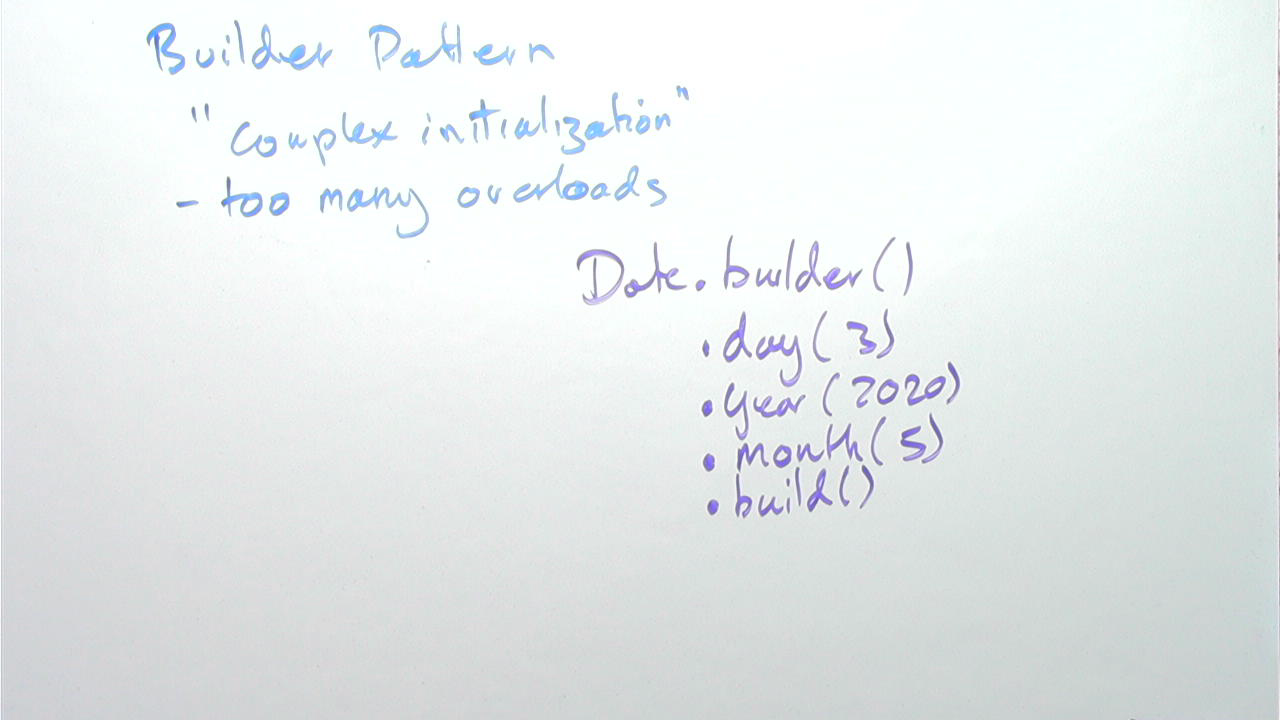 Builder Pattern
"complex initialization"
- too many overloads
Date.builder()
.day(3)
.year(2020)
.month(5)
.build()